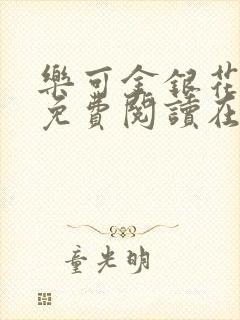 樂可金銀花
免費閱讀在
童光明